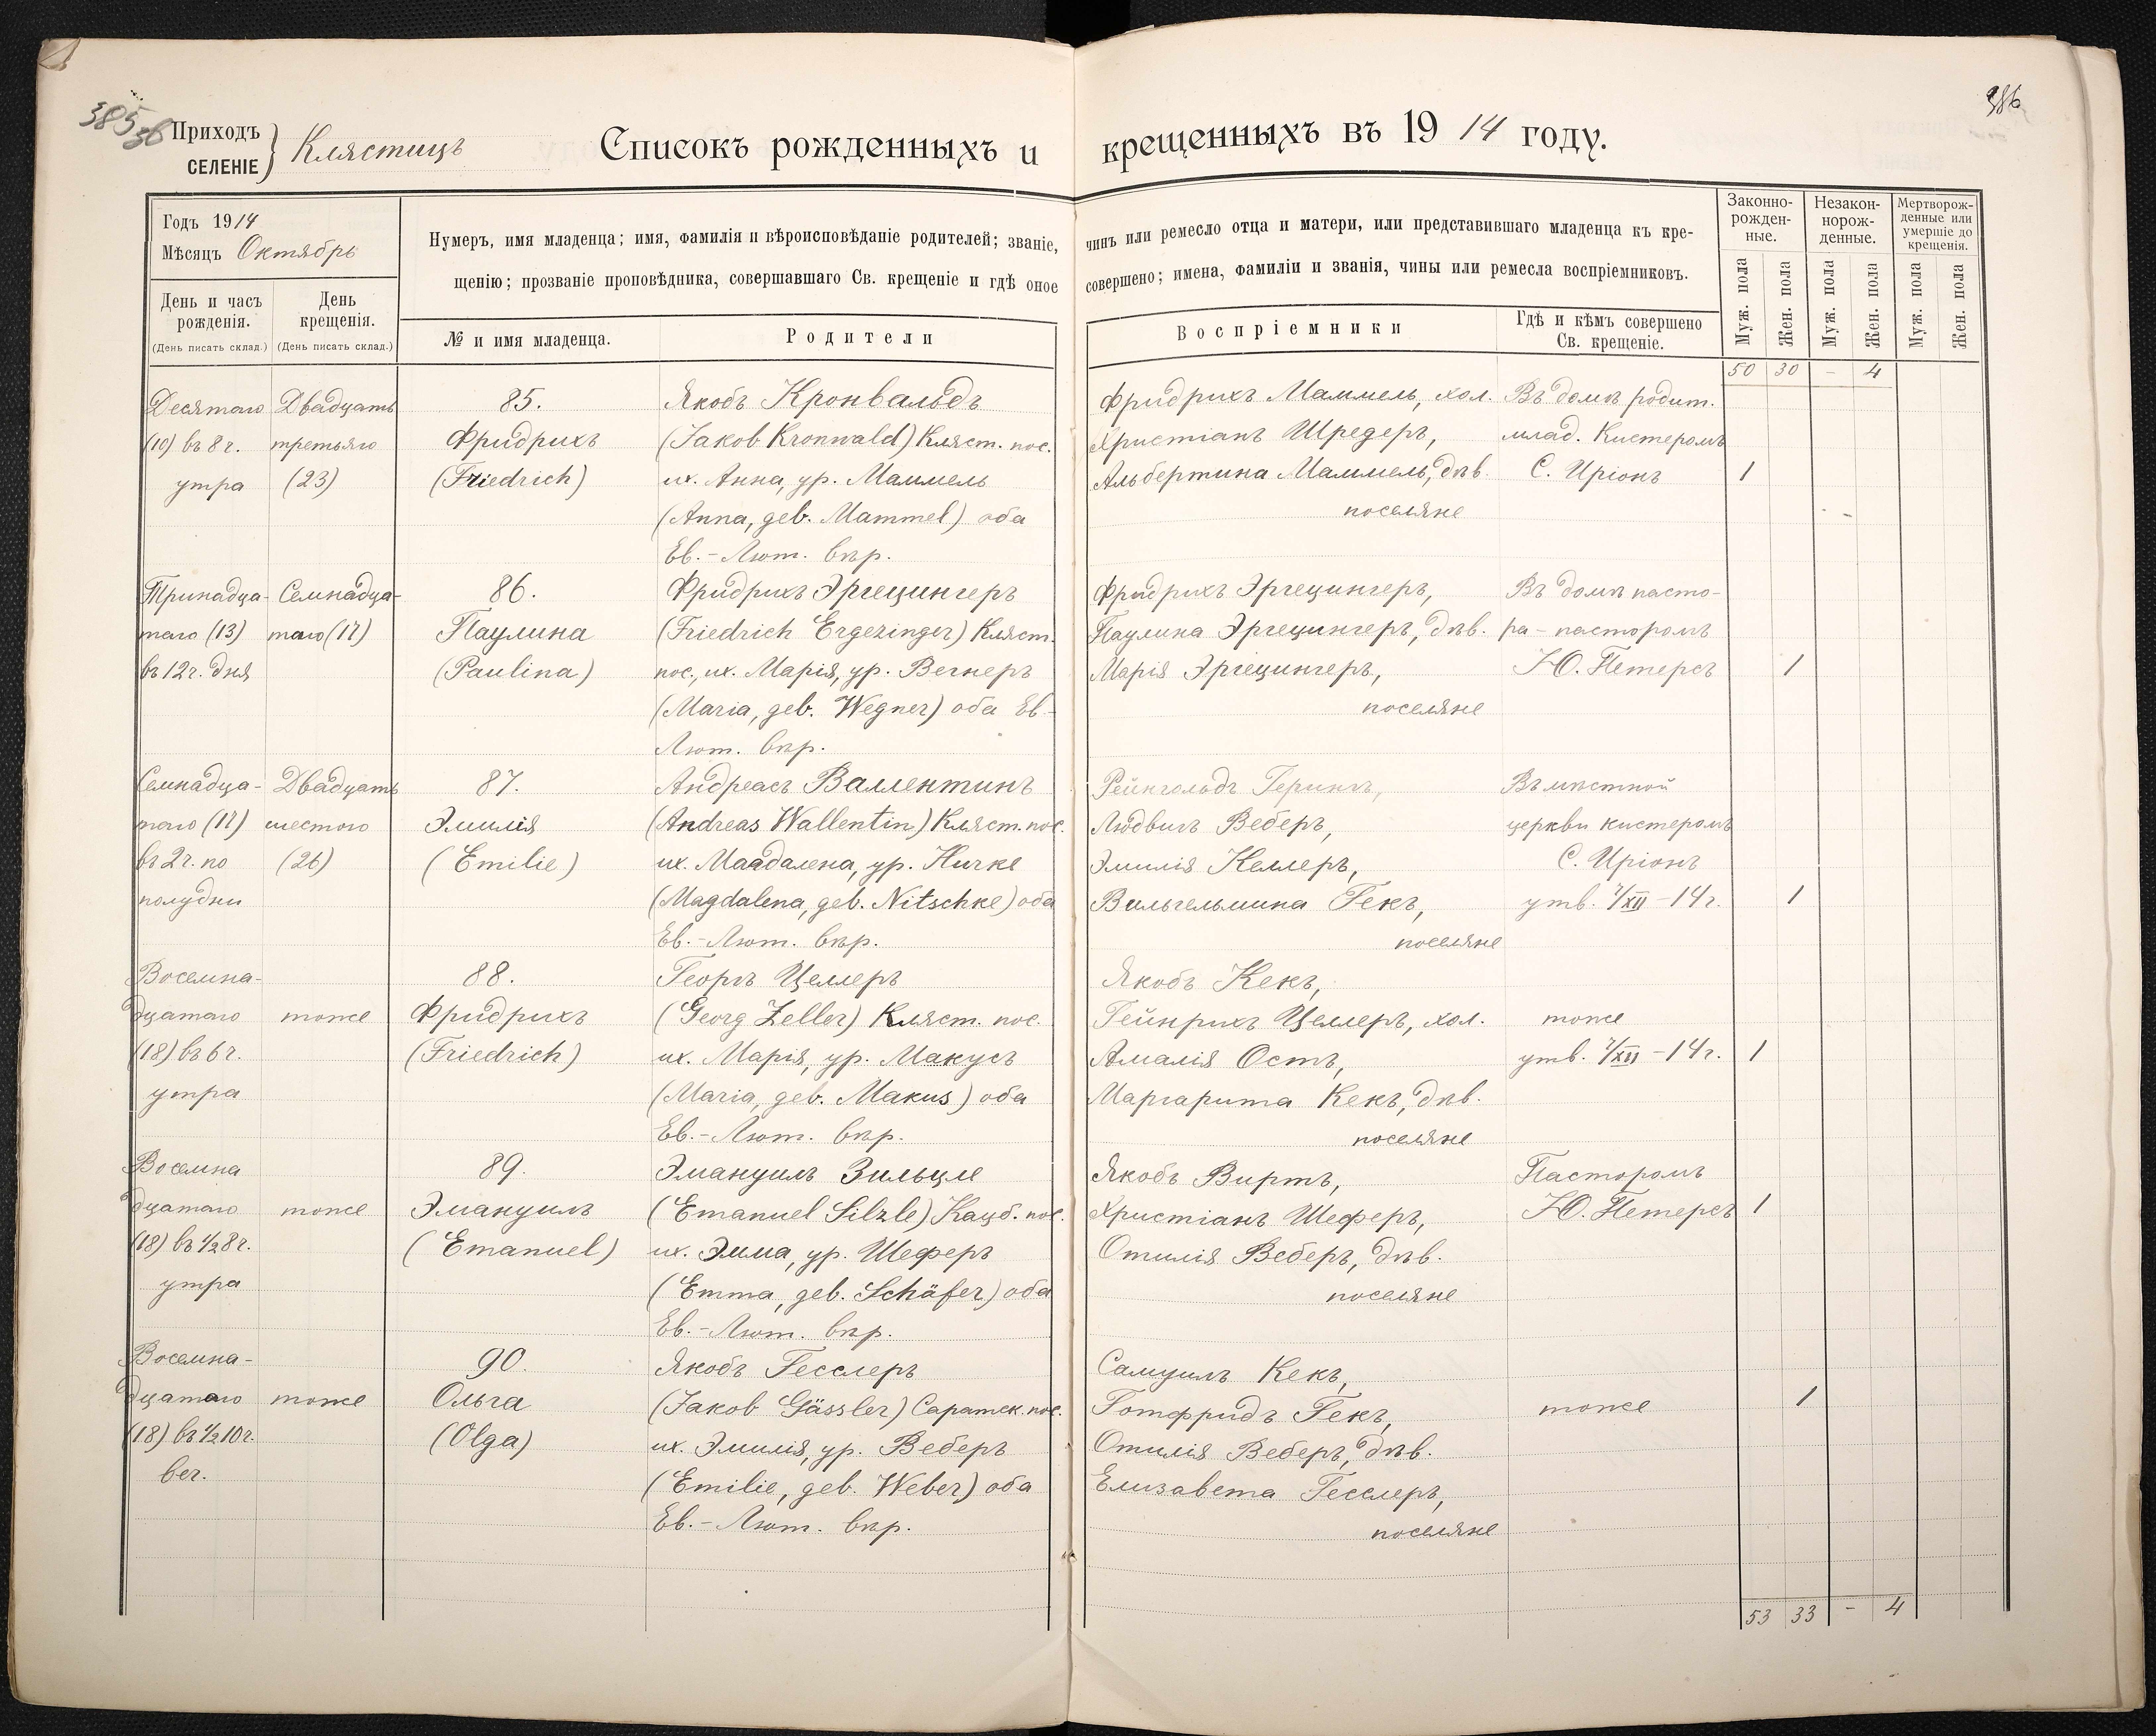 385
36
386
Приходъ
СЕЛЕНІЕ
Клястицъ
Списокъ рожденныхъ и крещенныхъ въ 1914 году.
Годъ 1914
Мѣсяцъ Октябрь
День и часъ рожденія.
(День писать склад.)
День крещенія.
(День писать склад.)
Нумеръ, имя младенца; имя, фамилія и вѣроисповѣданіе родителей; званіе, чинъ или ремесло отца и матери, или представившаго младенца къ кре-
щенію; прозваніе проповѣдника, совершавшаго Св. крещеніе и гдѣ оное совершено; имена, фамиліи и званія, чины или ремесла воспріемниковъ.
№ и имя младенца.
Родители
Воспріемники
Гдѣ и кѣмъ совершено Св. крещеніе.
Законно-рожден-ные.
Незакон-норож-денные.
Мертворож-денные или умершіе до крещенія.
Муж. пола
Жен. пола
Муж. пола
Жен. пола
Муж. пола
Жен. пола
50 30 - 4
Десятаго
(10) въ 8 г.
утра
Двадцать
третьяго
(23)
85.
Фридрихъ
(Friedrich)
Якобъ Кронвальдъ
(Jakob Kronwald) Кляст. пос.
их. Анна, ур. Маммель
(Anna, geb. Mammel) оба
Ев.-Лют. вѣр.
Фридрихъ Маммель, хол.
Христіанъ Шредеръ,
Альбертина Маммель, дѣв.
поселяне
Въ домѣ родит.
млад. Кистеромъ
С. Иріонъ
1
Тринадца-
таго (13)
въ 12 г. дня
Семнадца-
таго (17)
86.
Паулина
(Paulina)
Фридрихъ Эргецингеръ
(Friedrich Ergezinger) Кляст.
пос., их. Марія, ур. Вегнеръ
(Maria, geb. Wegner) оба Ев.-
Лют. вѣр.
Фридрихъ Эргецингеръ,
Паулина Эргецингеръ, дѣв.
Марія Эргецингеръ,
поселяне
Въ домѣ пасто-
ра - пасторомъ
Ю. Петерсъ
1
Семнадца-
таго (17)
въ 2 г. по
полудни
Двадцать
шестого
(26)
87.
Эмилія
(Emilie)
Андреасъ Валлентинъ
(Andreas Wallentin) Кляст. пос.
их. Магдалена, ур. Ничке
(Magdalena, geb. Nitschke) оба
Ев.-Лют. вѣр.
Рейнгольдъ Герингъ,
Людвигъ Веберъ,
Эмилія Келлеръ,
Вильгельмина Гекъ,
поселяне
Въ мѣстной
церкви кистеромъ
С. Иріонъ
утв. 7/XII - 14 г.
1
Восемна-
дцатаго
(18) въ 6 г.
утра
тоже
88.
Фридрихъ
(Friedrich)
Георгъ Целлеръ
(Georg Zeller) Кляст. пос.
их. Марія, ур. Макусъ
(Maria, geb. Makus) оба
Ев.-Лют. вѣр.
Якобъ Кекъ,
Гейнрихъ Целлеръ, хол.
Амалія Остъ,
Маргарита Кекъ, дѣв.
поселяне
тоже
утв. 7/XII - 14 г.
1
Восемна
дцатаго
(18) въ ½8 г.
утра
тоже
89.
Эмануилъ
(Emanuel)
Эмануилъ Зильцле
(Emanuel Silzle) Кацб. пос.
их. Эмма, ур. Шеферъ
(Emma, geb. Schäfer) оба
Ев.-Лют. вѣр.
Якобъ Виртъ,
Христіанъ Шеферъ,
Отилія Веберъ, дѣв.
поселяне
Пасторомъ
Ю. Петерсъ
1
Восемна-
дцатаго
(18) въ ½10 г.
веч.
тоже
90.
Ольга
(Olga)
Якобъ Гесслеръ
(Jakob Gässler) Саратск. пос.
их. Эмилія, ур. Веберъ
(Emilie, geb. Weber) оба
Ев.-Лют. вѣр.
Самуилъ Кекъ,
Готфридъ Гекъ,
Отилія Веберъ, дѣв.
Елизавета Гесслеръ,
поселяне
тоже
1
53 33 - 4